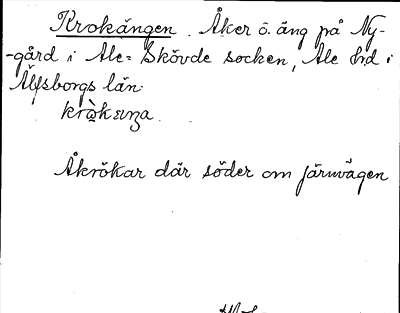 Krokängen. Åker o. äng på Ny-
-gård i Ale-Skövde socken, Ale hd i
Älfsborgs län.
Åkrökar där söder om järnvägen